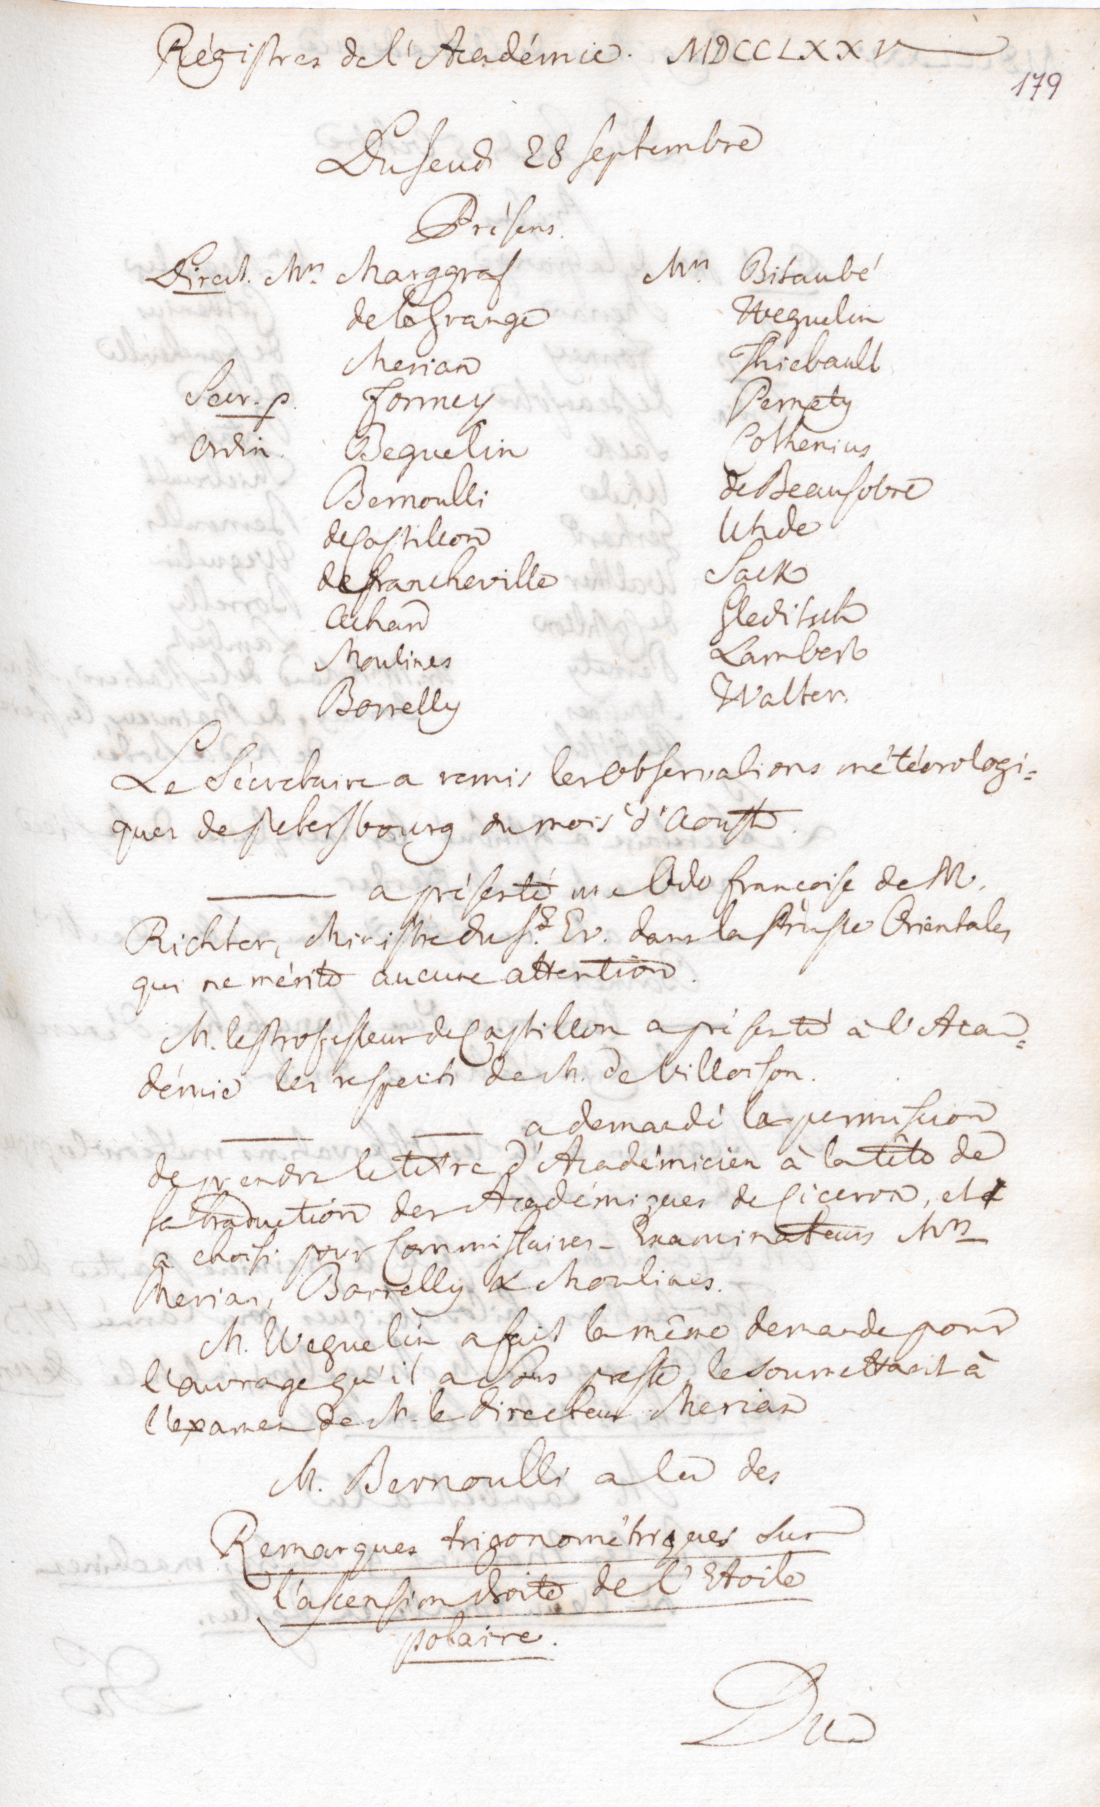 Régistres de l'Académie. MDCCLXXV
179
Du Jeudi 28 Septembre
Présens.
Direct. Mrs. Marggraf
de la Grange
Merian
Secr. p. Formey
Ordin. Beguelin
Bernoulli
de Castillon
de Francheville
Achard
Moulines
Borrelly
Mrs. Bitaubé
Weguelin
Thiebault
Pernety
Cothenius
de Beausobre
Uhde
Sack
Gleditsch
Lambert
Walter.
Le Sécretaire a remis les Observations météorologi=
ques de Petersbourg du mois d'Aoust.
——— a présenté une Ode françoise de M.
Richter, Ministre du St. Ev. dans la Prusse Orientale,
qui ne mérite aucune attention.
M. le Professeur de Castillon a présenté à l'Aca=
démie les respects de M. de Villoison.
——— ——— a demandé la permission
de prendre le titre d'Académicien à la tête de
sa traduction des Académiques de Ciceron, et
a choisi pour Commissaires-Examinateurs Mrs
Merian, Borrelly & Moulines.
M. Weguelin a fait la même demande pour
l'ouvrage qu'il a sous presse, le soumettant à
l'examen de M. le Directeur Merian
M. Bernoulli a lu des
Remarques trigonométriques sur
l'ascension droite de l'Etoile
polaire.
Du